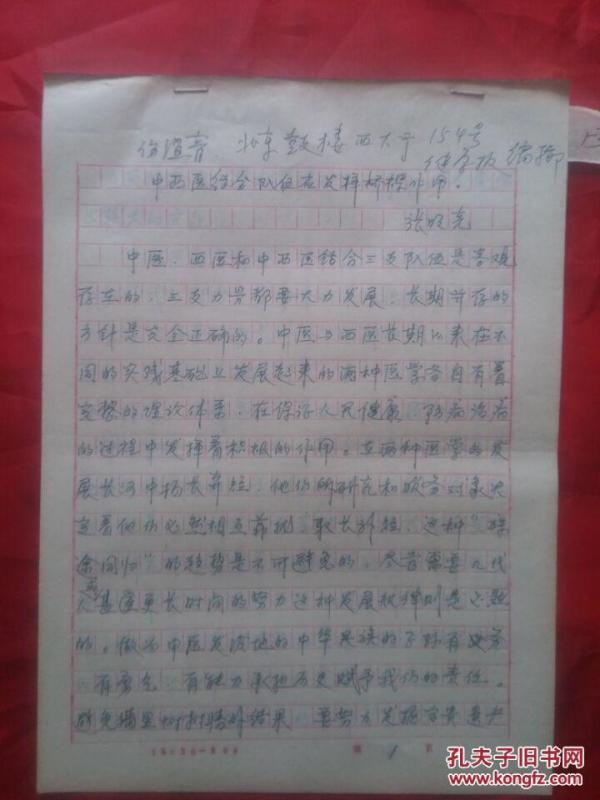 北京鼓楼西大于154号
健康报 编辑
中西医结合队伍应发挥桥梁作用。
中医、西医和中西医结合三支队伍是客观
存在的，三支力量都要大力发展、长期并存的
方针是完全正确的。中医与西医长期以来在不
同的实践基础上发展起来的两种医学各自有着
完整的理论体系，在保证人民健康、防病治病
的过程中发挥着积极的作用。在两种医学的发
展长河中扬长弃短，他们的研究和服务对象决
定着他们必然相互靠拢，取长补短，这种“殊
途同归”的趋势是不可避免的，尽管需要几代
人甚至更长时间的努力这种发展规律则是必然
的。做为中医发源地的中华民族的子孙有义务
有责任 有能力承担历史赋予我们的责任。
避免墙里 墙外结果 要努力发掘宝贵遗产
第 1 页
孔夫子旧书网
www.kongfz.com